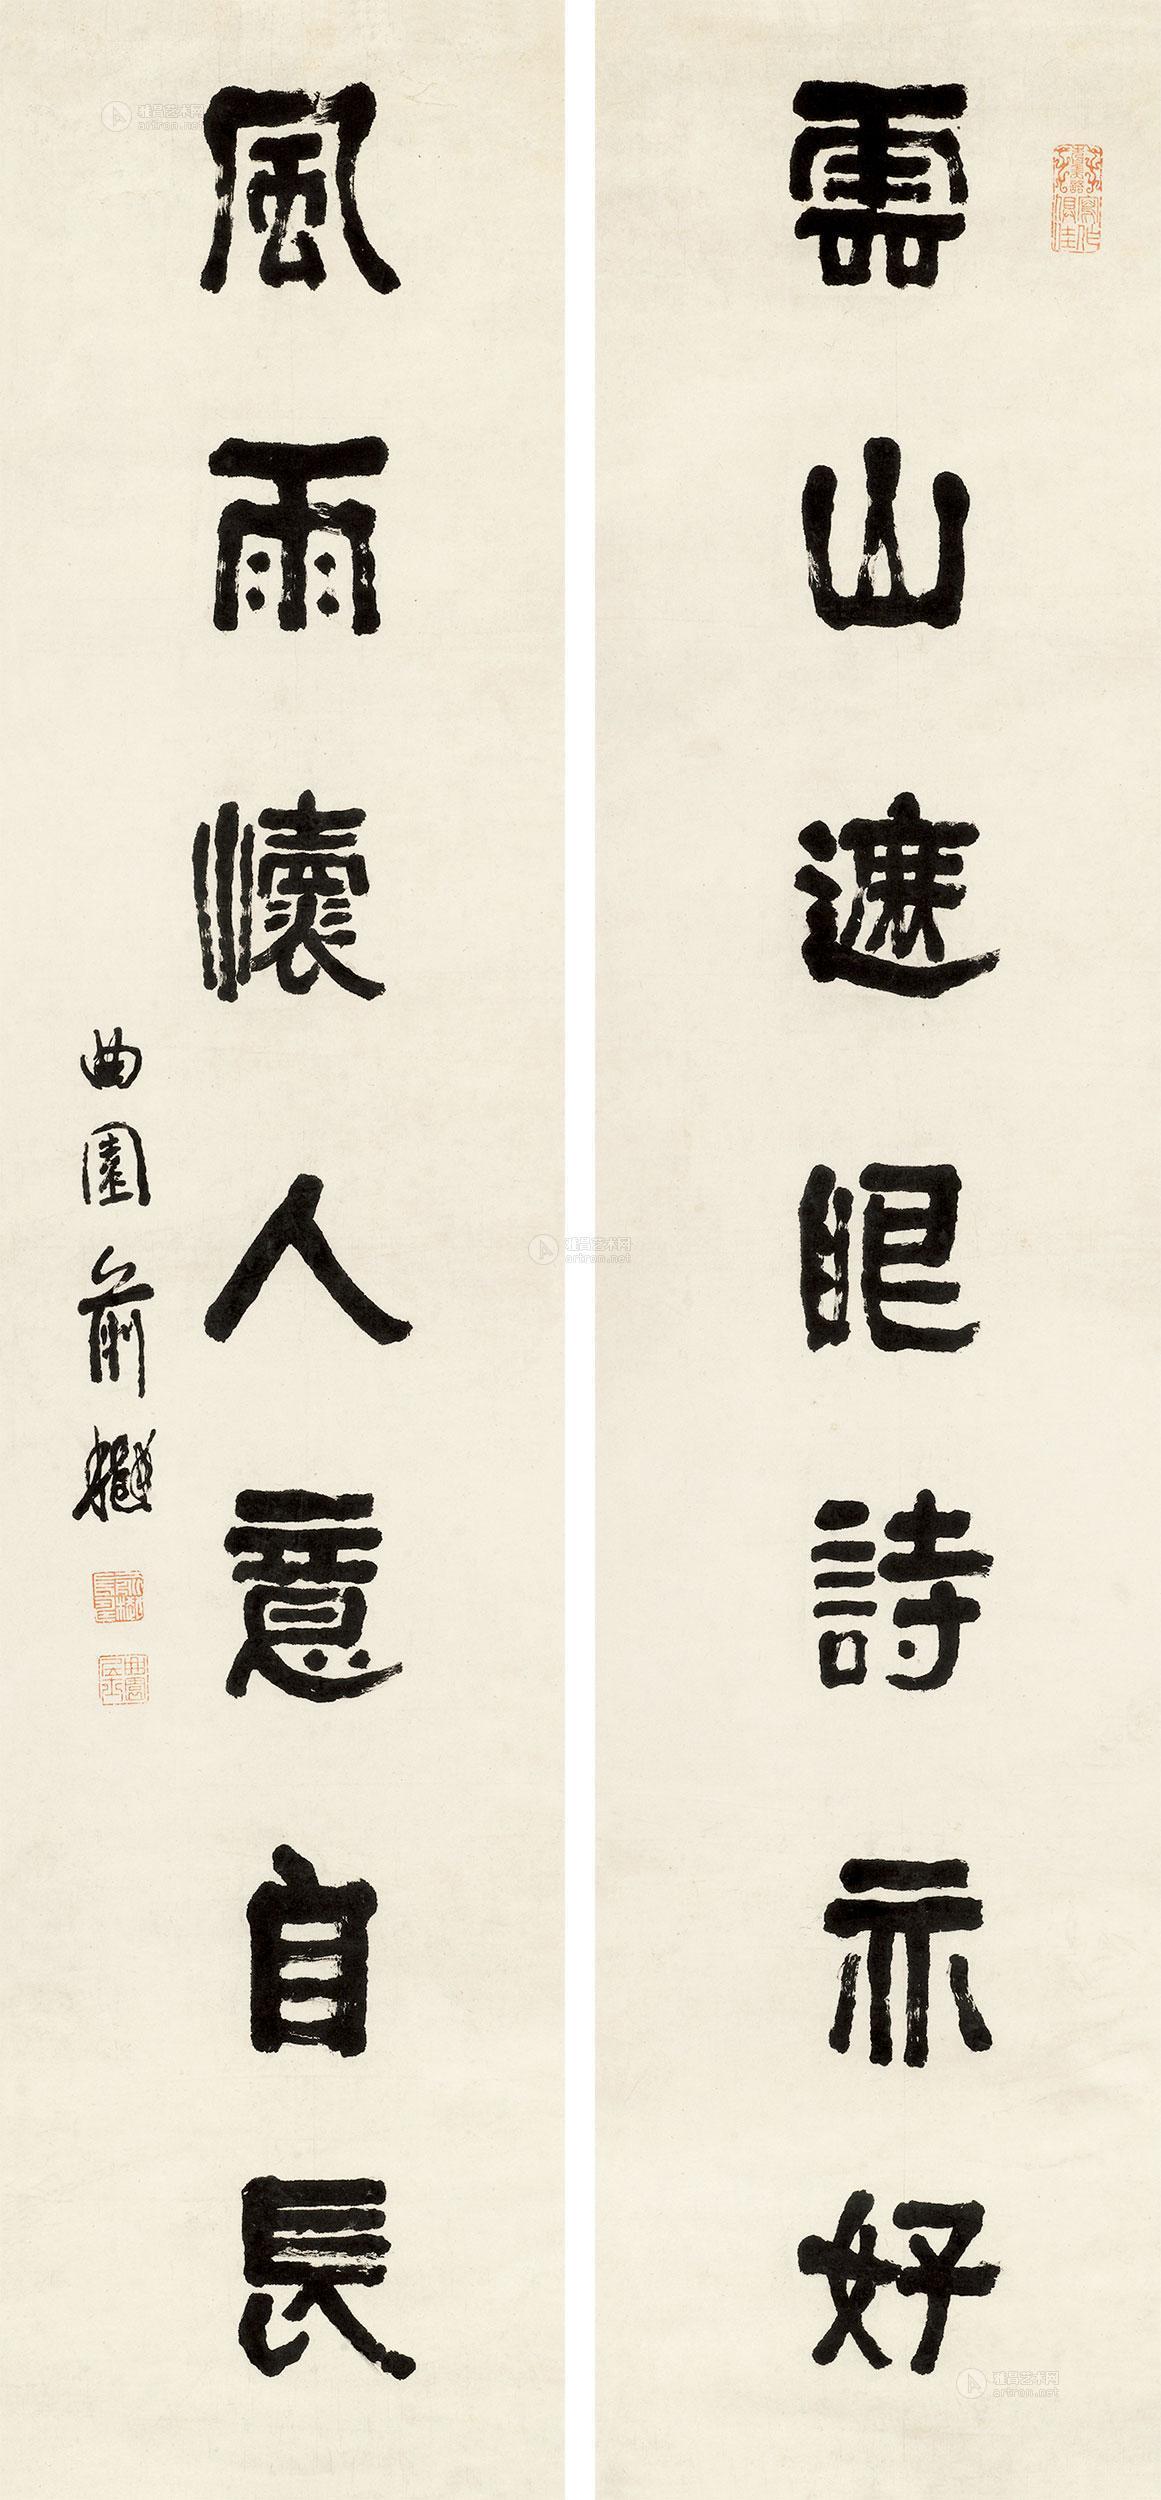 雲山遮眼詩亦好
風雨懷人意自長
曲園俞樾
雅昌艺术网
artron.net
雅昌艺术网
artron.net
雅昌艺术网
artron.net